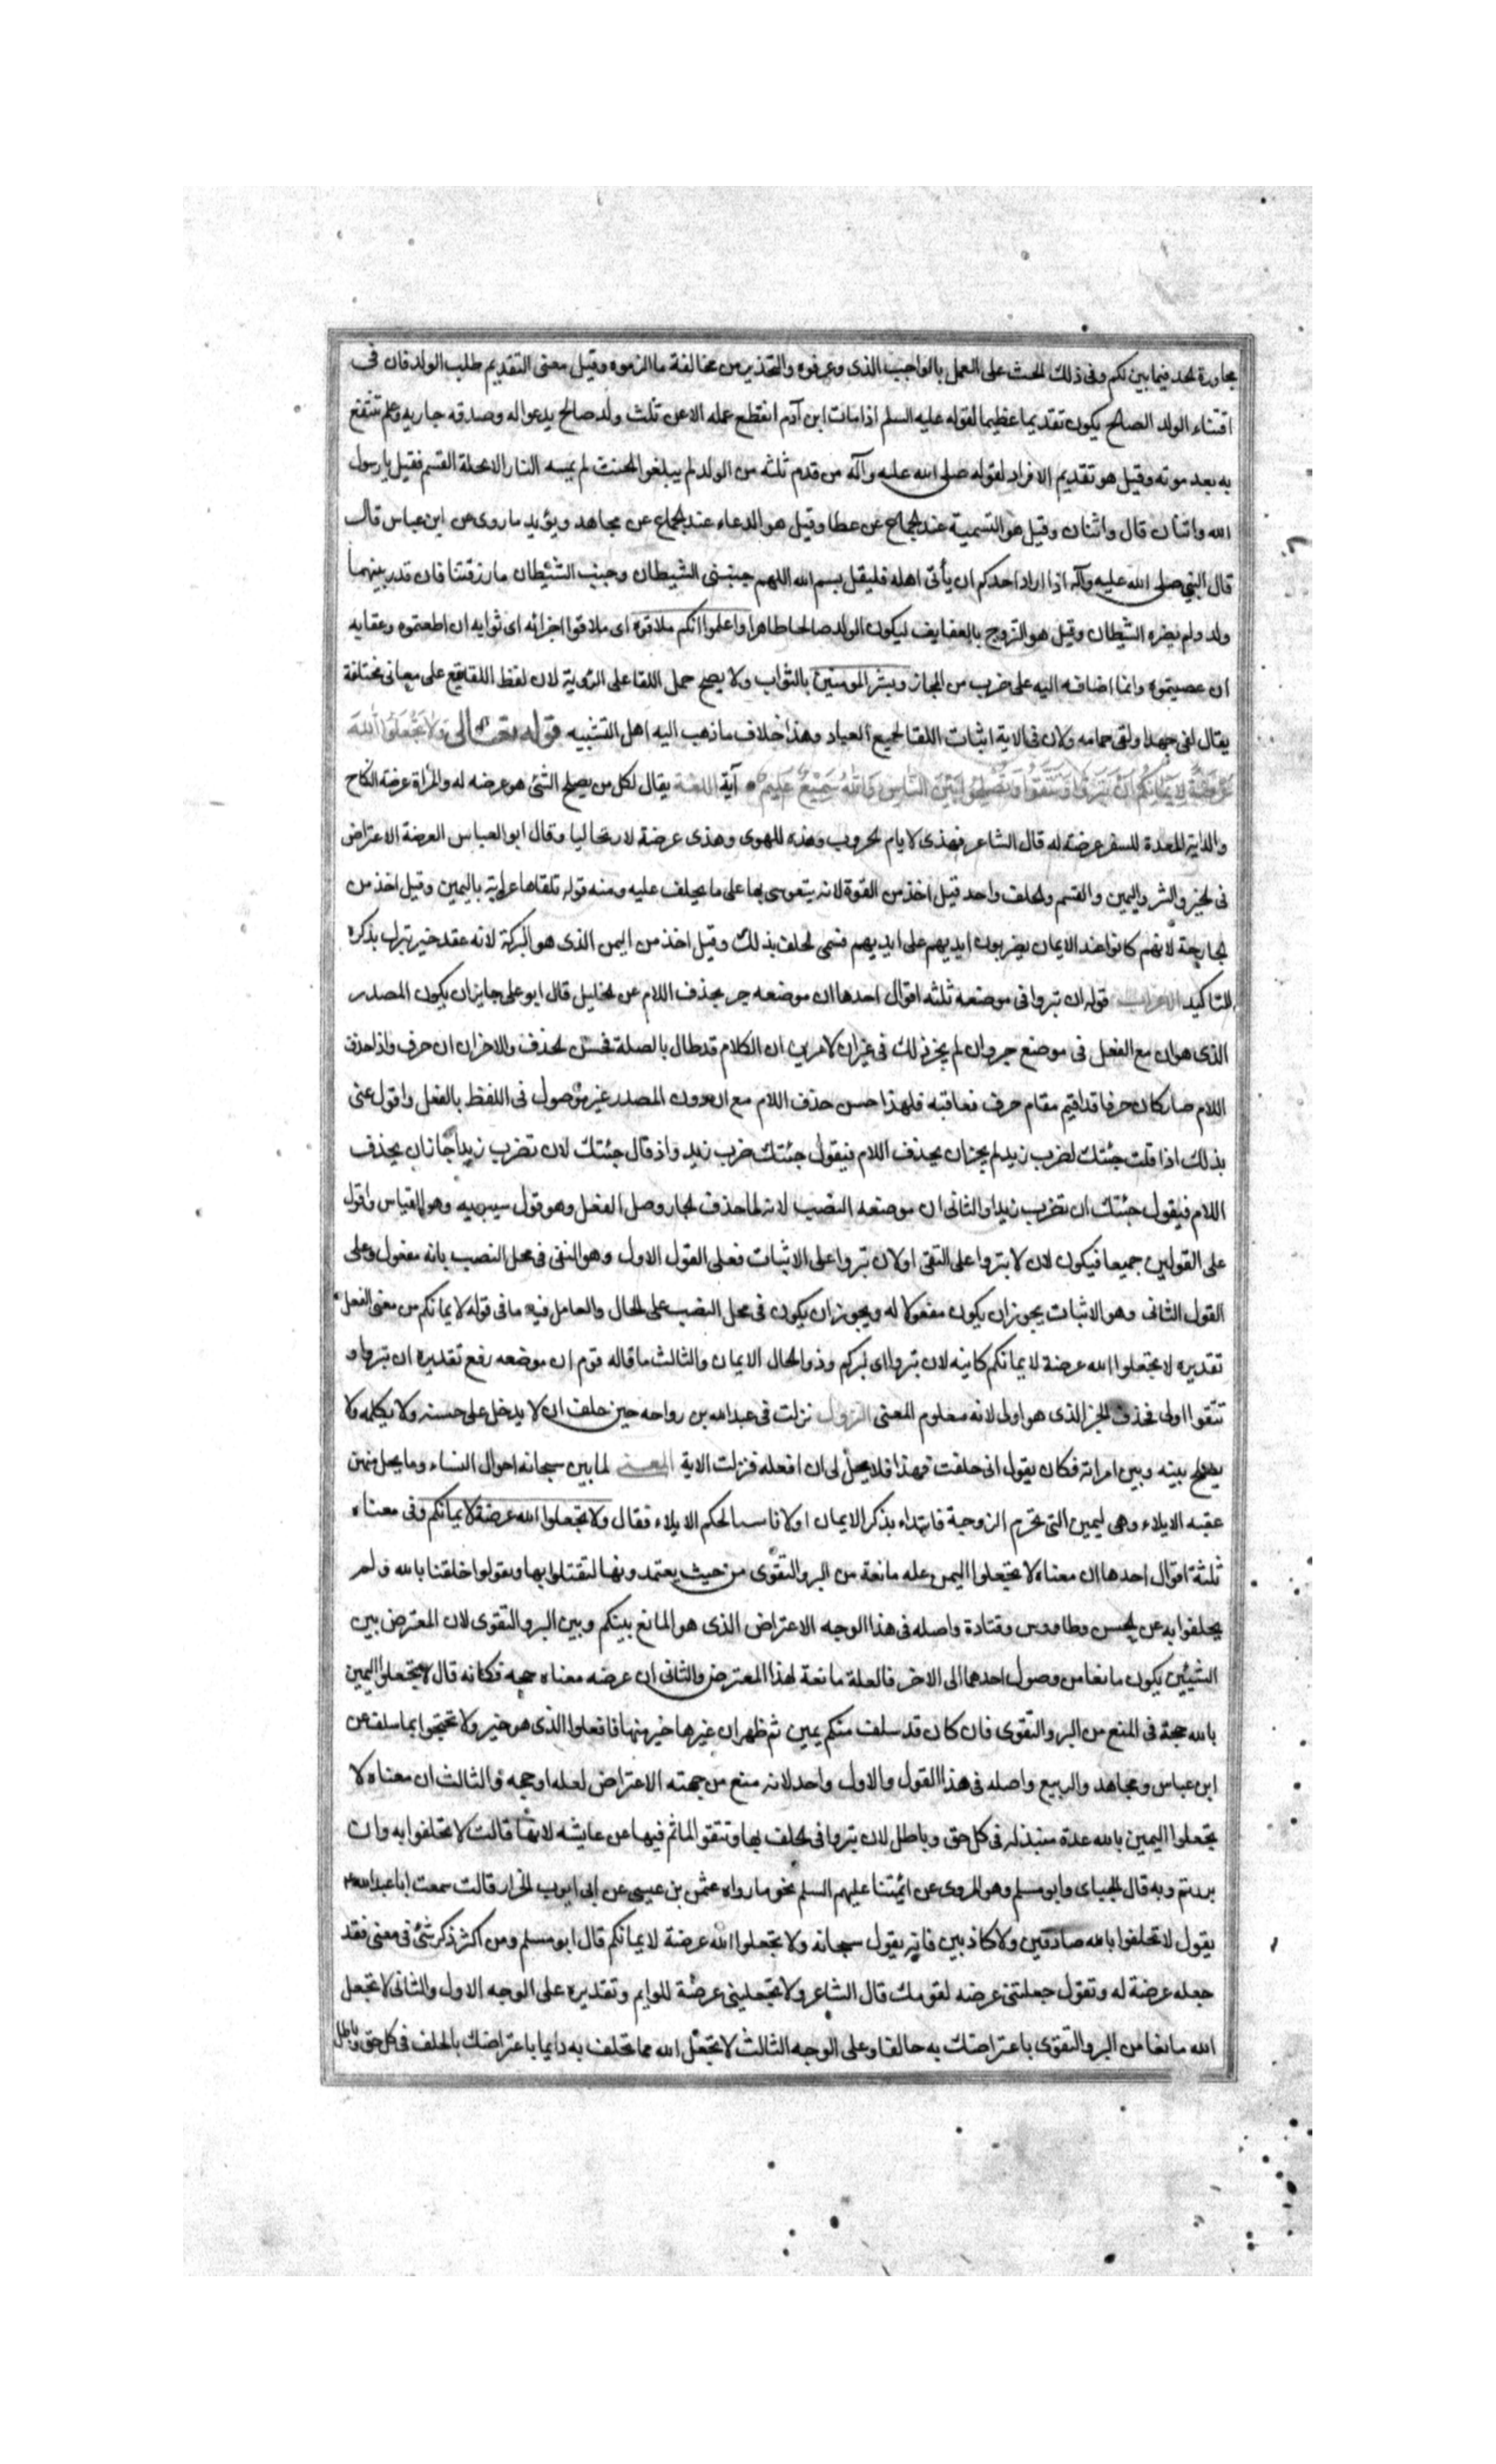 مجاوزة الحد فيما بين لكم وفى ذلك الحث على العمل بالواجب الذى وعرفوه والتحذير من مخالفة ما الزموه وقيل معنى التقديم طلب الولد فان فى
اقتناء الولد الصالح يكون تقديما عظيما لقوله عليه السلم اذا مات ابن آدم انقطع عمله الا عن ثلث ولد صالح يدعو اله وصدقه جاريه وعلم تنتفع
به بعد موته وقيل هو تقديم الافراد لقوله صلى الله عليه وآله من قدم ثلثه من الولد لم يبلغوا الحنث لم يمسه النار الا محلة القسم فقيل يا رسول
الله واثنان قال واثنان وقيل هو التسمية عند الجماع عن عطا وقيل هو الدعاء عند الجماع عن مجاهد ويؤيد ما روى عن ابن عباس قال
قال النبي صلى الله عليه وآله اذا اراد احدكم ان يأتى اهله فليقل بسم الله اللهم جنبنى الشيطان وجنب الشيطان ما رزقتنا فان قدر بينهما
ولد ولم يضره الشيطان وقيل هو التزوج بالعفايف ليكون الولد صالحا طاهرا واعلموا انكم ملاقوه اى ملاقوا اجزائه اى ثوابه ان اطعتموه وعقابه
ان عصيتموه وانما اضافه اليه على ضرب من المجاز وبشر المومنين بالثواب ولا يصح حمل اللقا على الروية لان لفظ اللقا يقع على معانى مختلفة
يقال لقى جهدا ولقى حمامه ولان فى الاية اثبات اللقا لجميع العباد وهذا خلاف ما ذهب اليه اهل التشبيه قوله تعالى ولا تجعلوا الله
عرضة لايمانكم ان تبروا وتتقوا وتصلحوا بين الناس والله سميع عليم آية اللغة يقال لكل من يصلح الشئ هو عرضه له والمرأة عرضة النكاح
والدابة المعدة للسفر عرضة له قال الشاعر فهذى لايام الحروب وهذه للهوى وهذى عرضة لارتحاليا وقال ابو العباس العرضة الاعتراض
فى الخير والشر واليمين والقسم والحلف واحد قيل اخذ من القوة لانه يتقوى بها على ما يحلف عليه ومنه قوله تلقاها عرابة باليمين وقيل اخذ من
الجارحة لانهم كانوا عند الايمان يضربون ايديهم على ايديهم فسمى الحلف بذلك وقيل اخذ من اليمن الذى هو البركة لانه عقد خير تبرك بذكره
للتاكيد الاعراب قوله ان تبروا فى موضعه ثلثه اقوال احدها ان موضعه جر بحذف اللام عن الخليل قال ابو على جايز ان يكون المصدر
الذى هو ان مع الفعل فى موضع جر وان لم يجز ذلك فى غير ان لامرين ان الكلام قد طال بالصلة فحسن الحذف والاخر ان ان حرف واذا حذف
اللام صار كان حرفا قد اقيم مقام حرف فعاقبه فلهذا حسن حذف اللام مع ان دون المصدر غير موصول فى اللفظ بالفعل واقول عنى
بذلك اذا قلت جئتك لضرب زيد لم يجز ان يحذف اللام فيقول جئتك ضرب زيد واذ قال جئتك لان تضرب زيدا جاز ان يحذف
اللام فيقول جئتك ان تضرب زيدا والثانى ان موضعه النصب لانه لما حذف الجار وصل الفعل وهو قول سيبويه وهو القياس واقول
على القولين جميعا فيكون لان لا تبروا على النفى او لان تبروا على الاثبات فعلى القول الاول وهو النفى فى محل النصب بانه مفعول وعلى
القول الثانى وهو الاثبات يجوز ان يكون مفعولا له ويجوز ان يكون فى محل النصب على الحال والعامل فيه ما فى قوله لايمانكم من معنى الفعل
تقديره لا تجعلوا الله عرضة لايمانكم كاينه لان تبروا اى لبركم وذو الحال الايمان والثالث ما قاله قوم ان موضعه رفع تقديره ان تبروا و
تتقوا اولى فحذف الخبر الذى هو اولى لانه معلوم المعنى النزول نزلت فى عبد الله بن رواحه حين حلف ان لا يدخل على ختنه ولا يكلمه ولا
يصلح بينه وبين امراته فكان يقول انى حلفت بهذا فلا يحل لى ان افعله فنزلت الاية المعنى لما بين سبحانه احوال النساء وما يحل منهن
عقبه الايلاء وهى اليمين التى تحرم الزوجية فابتداء بذكر الايمان اولا تاسيسا لحكم الايلاء فقال ولا تجعلوا الله عرضة لايمانكم وفى معناه
ثلثة اقوال احدها ان معناه لا تجعلوا اليمين عله مانعة من البر والتقوى من حيث يعتمدونها لتقتلوا بها وتقولوا حلفنا بالله ولم
يحلفوا به عن الحسن وطاووس وقتادة واصله فى هذا الوجه الاعتراض الذى هو المانع بينكم وبين البر والتقوى لان المعترض بين
الشيئين يكون مانعا من وصول احدهما الى الاخر فالعلة مانعة لهذا المعترض والثانى ان عرضه معناه حجه فكانه قال لا تجعلوا اليمين
بالله حجة فى المنع من البر والتقوى فان كان قد سلف منكم يمين ثم ظهر ان غيرها خير منها فافعلوا الذى هو خير ولا تحتجوا بما سلف عن
ابن عباس ومجاهد والربيع واصله فى هذا القول والاول واحد لانه منع من جهته الاعتراض لعله او حجه والثالث ان معناه لا
تجعلوا اليمين بالله عدة مبتذلة فى كل حق وباطل لان تبروا فى الحلف بها وتتقوا الماثم فيها عن عايشه لانها قالت لا تحلفوا به وان
بررتم وبه قال الجبياى وابو مسلم وهو المروى عن ائمتنا عليهم السلم نحو ما رواه عثمن بن عيسى عن ابى ايوب الخزار قالت سمعت ابا عبد الله ع
يقول لا تحلفوا بالله صادقين ولا كاذبين فانه يقول سبحانه ولا تجعلوا الله عرضة لايمانكم قال ابو مسلم ومن اكثر ذكر شئ فى معنى فقد
جعله عرضة له وتقول جعلتنى عرضه لقومك قال الشاعر ولا تجعلينى عرضة للوايم وتقديره على الوجه الاول والثانى لا تجعل
الله مانعا من البر والتقوى باعتراضك به حالفا وعلى الوجه الثالث لا تجعل الله مما تحلف به دايما باعتراضك بالحلف فى كل حق وباطل